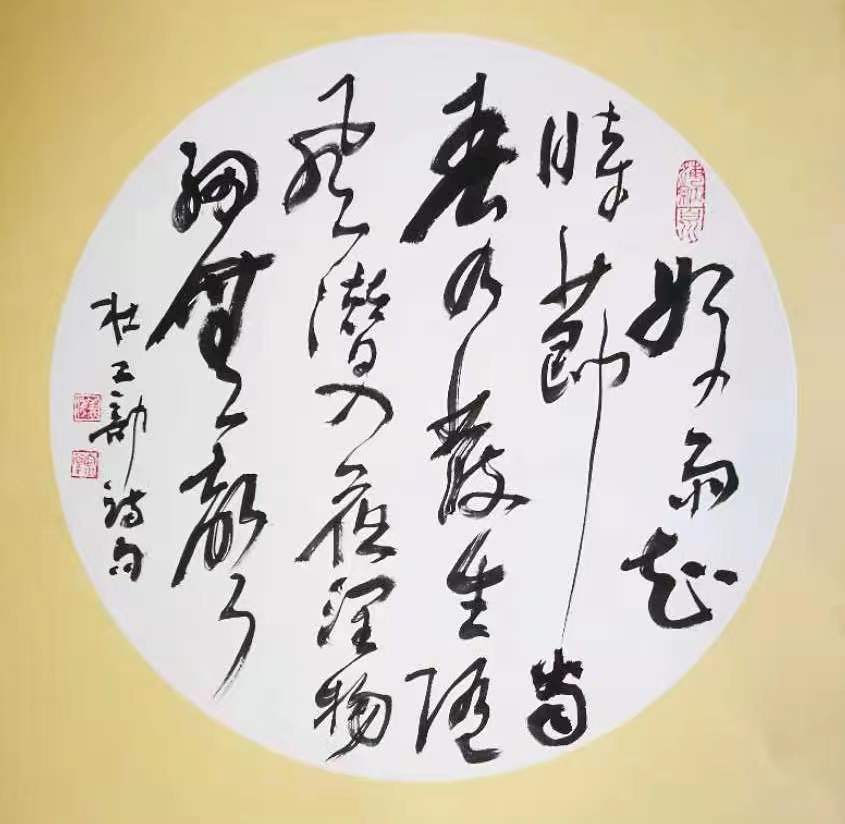 好雨知
時節當
春乃發生隨
風潛入夜潤物
細無聲
杜工部詩句